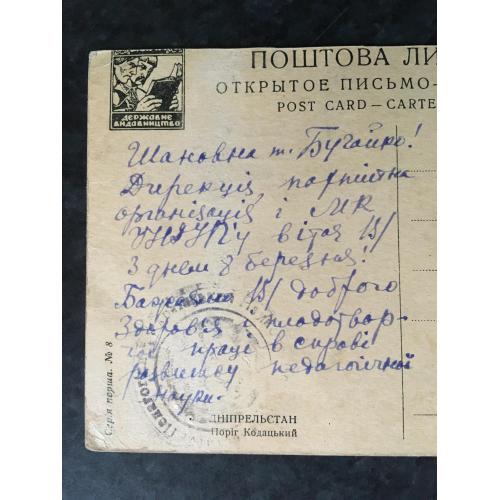 ПОШТОВА ЛИ
ОТКРЫТОЕ ПИСЬМО-
POST CARD — CARTE
ДЕРЖАВНЕ
ВИДАВНИЦТВО
Шановна т. Бугайко!
Дирекція, партійна
організація і МК
УНДІПу вітає В/
З днем 8 березня!
Бажаємо В/ доброго
Здоровья і плодотвор-
ної праці в справі
розвитку педагогічної
науки.
ДНІПРЕЛЬСТАН
Поріг Кодацький
Серія перша. № 8